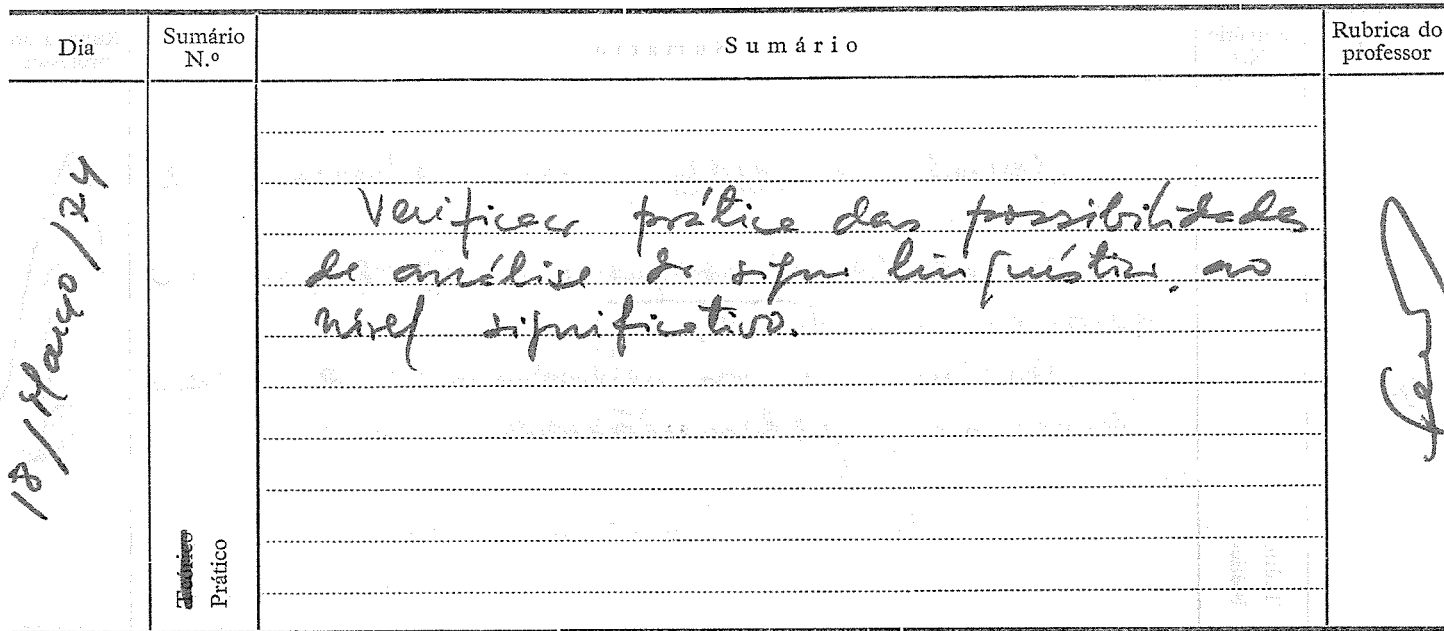 Dia
Sumário
N.º
Sumário
Rubrica do
professor
18/Março/74
Verificação prática das possibilidades
de análise do signo linguístico ao
nível significativo.
Teórico
Prático